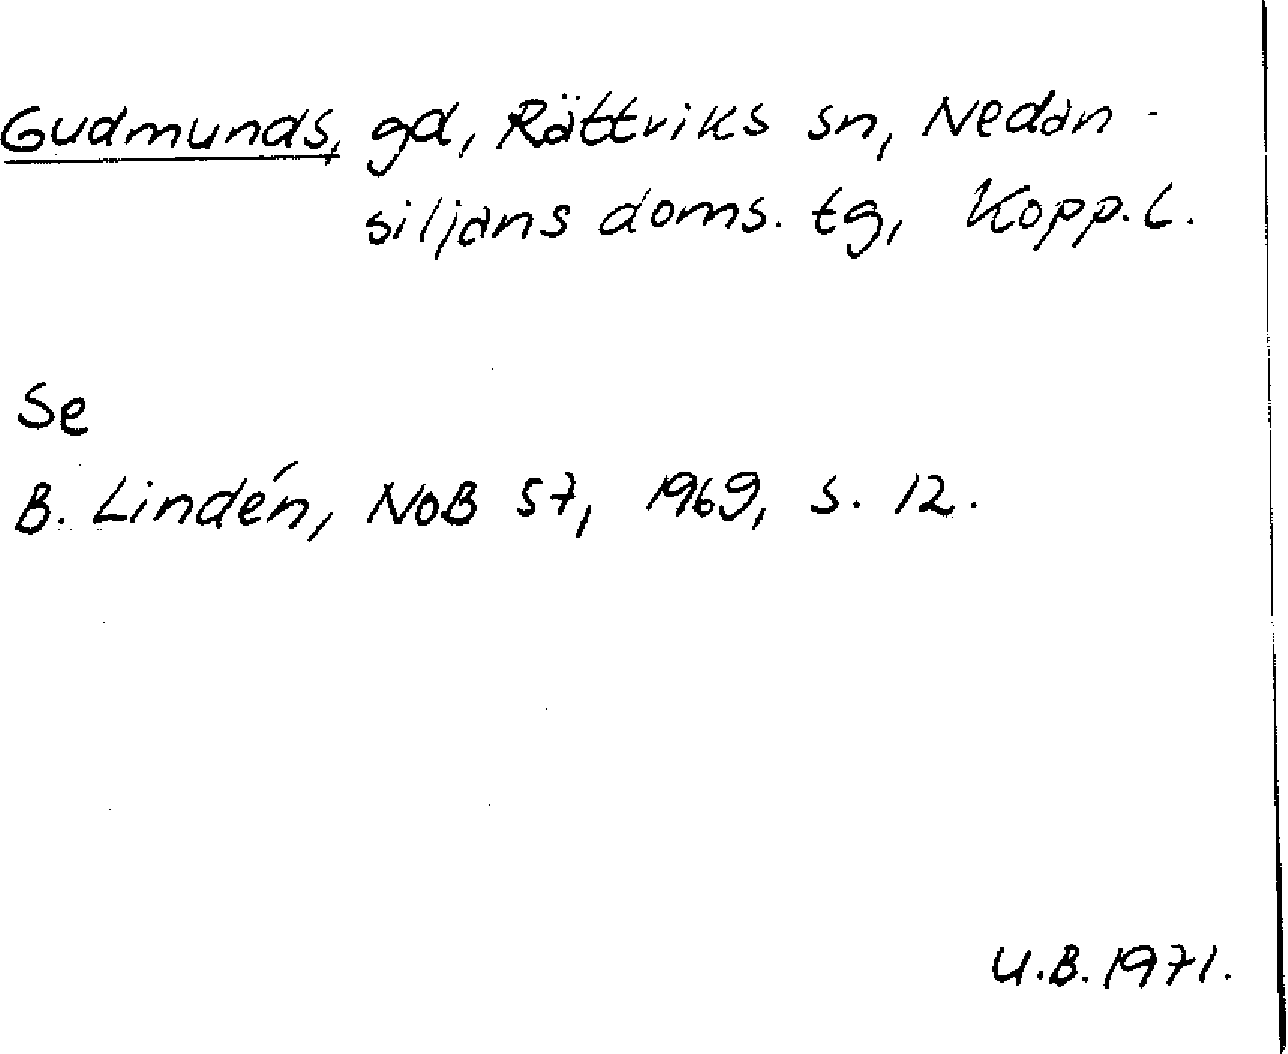 Gudmunds, gd, Rättviks sn, Nedan-
siljans doms. tg, Kopp. L.
Se
B. Lindén, NoB 57, 1969, s. 12.
U.B. 1971.